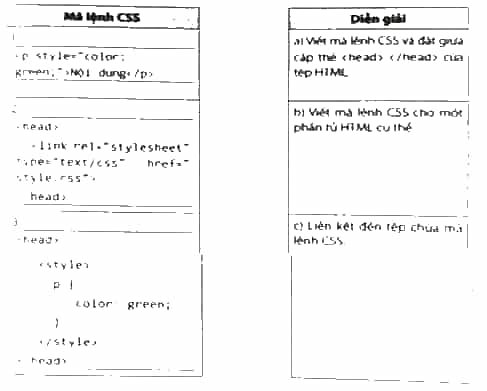 Mã lệnh CSS
1
<p style="color:
green;">Nội dung</p>
2
<head>
<link rel="stylesheet"
type="text/css" href="
style.css">
head>
3
<head>
<style>
p {
color: green;
}
</style>
head>
Diễn giải
a) Viết mã lệnh CSS và đặt giữa
cặp thẻ <head> </head> của
tệp HTML
b) Viết mã lệnh CSS cho một
phần tử HTML cụ thể
c) Liên kết đến tệp chứa mã
lệnh CSS.